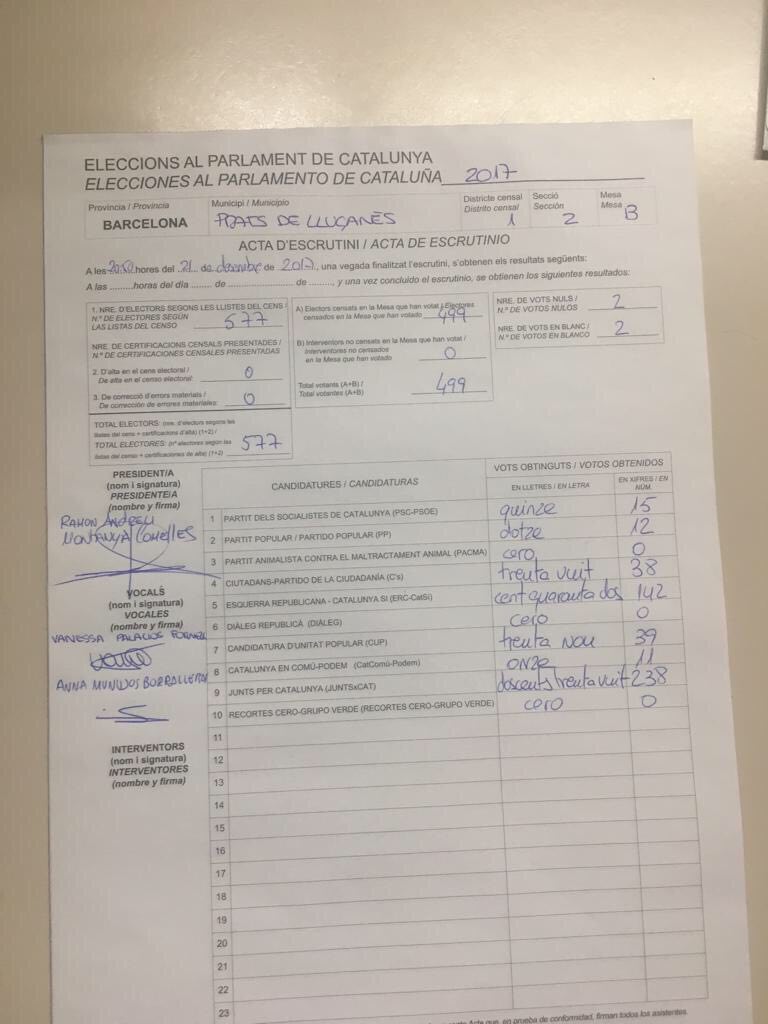 ELECCIONS AL PARLAMENT DE CATALUNYA
ELECCIONES AL PARLAMENTO DE CATALUÑA 2017
Provincia / Provincia
BARCELONA
Municipi / Municipio
PRATS DE LLUÇANÈS
Districte censal
Distrito censal
1
Secció
Sección
2
Mesa
Mesa
B
ACTA D'ESCRUTINI / ACTA DE ESCRUTINIO
A les hores del 21 de desembre de 2017, una vegada finalitzat l'escrutini, s'obtenen els resultats següents:
A las ......... hores del día ....... de ........................ de .........., y una vez concluido el escrutinio, se obtienen los siguientes resultados:
1. NRE. D'ELECTORS SEGONS LES LLISTES DEL CENS /
N.º DE ELECTORES SEGÚN
LAS LISTAS DEL CENSO 577
NRE. DE CERTIFICACIONS CENSALS PRESENTADES /
N.º DE CERTIFICACIONES CENSALES PRESENTADAS
2. D'alta en el cens electoral /
De alta en el censo electoral: 0
3. De correcció d'errors materials /
De corrección de errores materiales: 0
TOTAL ELECTORS: (nre. d'electors segons les
llistes del cens + certificacions d'alta) (1+2) /
TOTAL ELECTORES: (nº electores según las
listas del censo + certificaciones de alta) (1+2) 577
A) Electors censats en la Mesa que han votat / Electores
censados en la Mesa que han votado 499
B) Interventors no censats en la Mesa que han votat /
Interventores no censados
en la Mesa que han votado 0
Total votants (A+B) /
Total votantes (A+B) 499
NRE. DE VOTS NULS /
N.º DE VOTOS NULOS 2
NRE. DE VOTS EN BLANC /
N.º DE VOTOS EN BLANCO 2
PRESIDENT/A
(nom i signatura)
PRESIDENTE/A
(nombre y firma)
RAMON ANDREU
MONTANYÀ COMELLES
VOCALS
(nom i signatura)
VOCALES
(nombre y firma)
VANESSA PALACIOS
ANNA
INTERVENTORS
(nom i signatura)
INTERVENTORES
(nombre y firma)
CANDIDATURES / CANDIDATURAS
VOTS OBTINGUTS / VOTOS OBTENIDOS
EN LLETRES / EN LETRA
EN XIFRES / EN NÚM.
1 PARTIT DELS SOCIALISTES DE CATALUNYA (PSC-PSOE) quinze 15
2 PARTIT POPULAR / PARTIDO POPULAR (PP) dotze 12
3 PARTIT ANIMALISTA CONTRA EL MALTRACTAMENT ANIMAL (PACMA) cero 0
4 CIUTADANS-PARTIDO DE LA CIUDADANÍA (C's) trenta vuit 38
5 ESQUERRA REPUBLICANA - CATALUNYA SÍ (ERC-CatSí) cent quaranta dos 142
6 DIÀLEG REPUBLICÀ (DIÀLEG) cero 0
7 CANDIDATURA D'UNITAT POPULAR (CUP) trenta nou 39
8 CATALUNYA EN COMÚ-PODEM (CatComú-Podem) onze 11
9 JUNTS PER CATALUNYA (JUNTSxCAT) doscents trenta vuit 238
10 RECORTES CERO-GRUPO VERDE (RECORTES CERO-GRUPO VERDE) cero 0
11
12
13
14
15
16
17
18
19
20
21
22
23
Acta que, en prueba de conformidad, firman todos los asistentes.